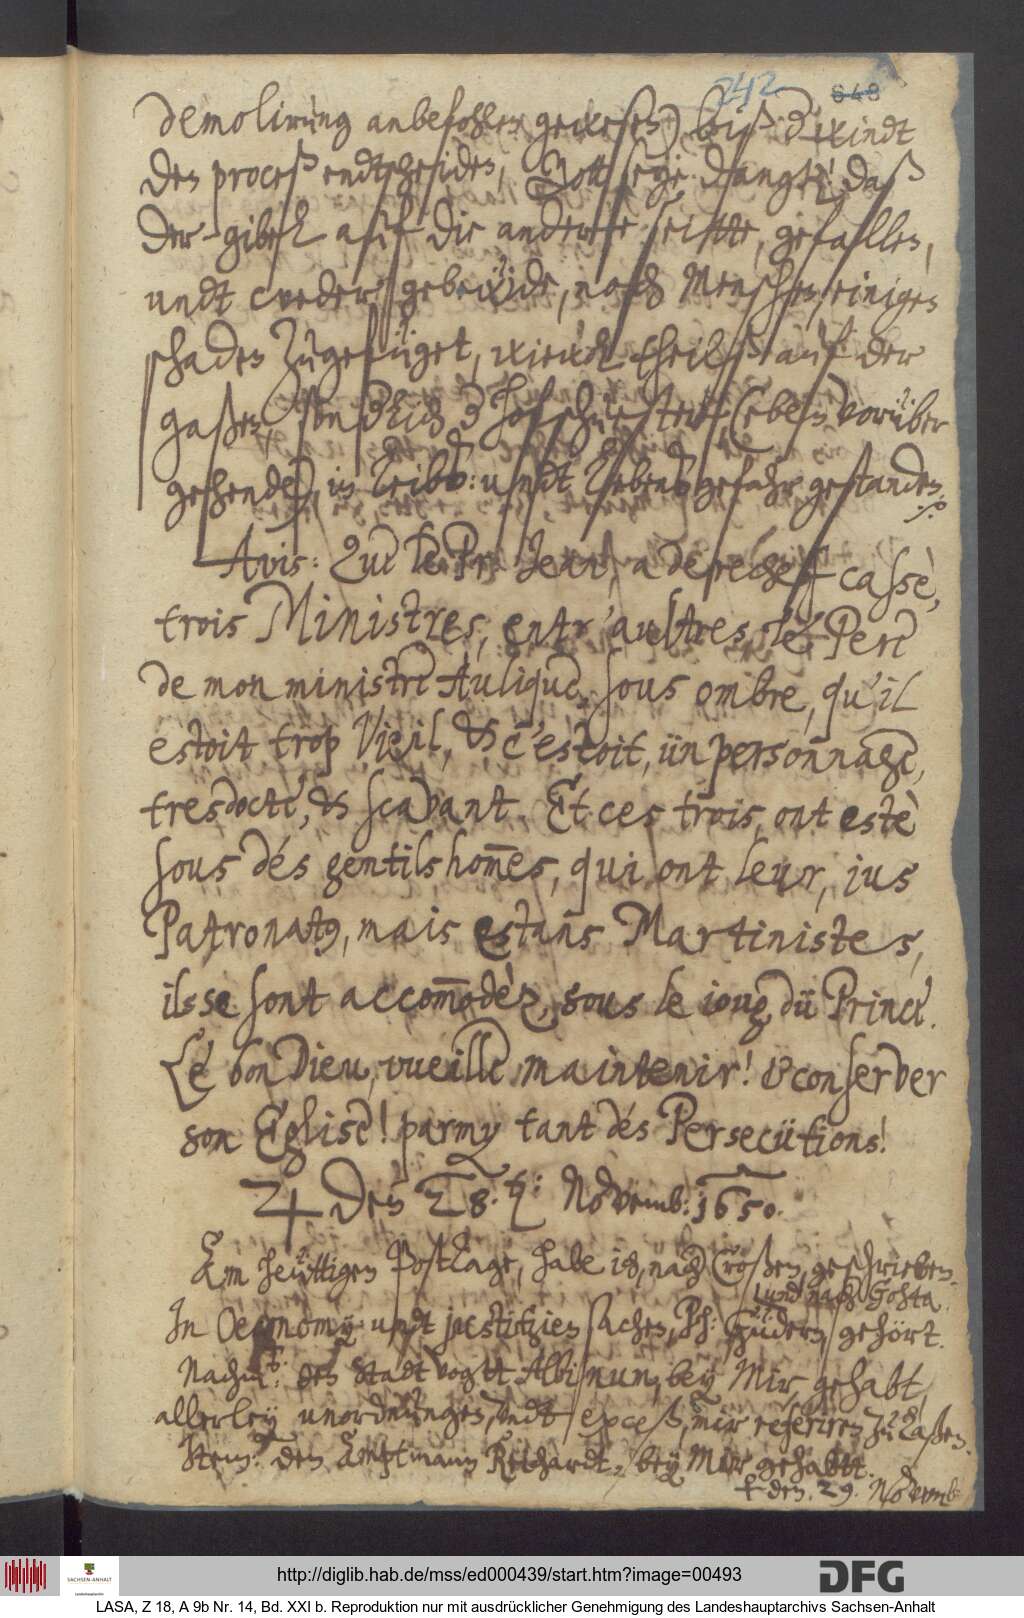 242 648
demolirung anbefohlen gewesen) biß d. windt
den proceß endtscheiden, Gott seye dangk! daß
der gibel auf die anderere seitte, gefallen,
undt weder gebewde, noch Menschen, einigen
schaden zugefüget, wiewol theilß auf der
gaßen, sonderlich d. (eben vorüber
gehende) in Leibß: undt Lebens gefahr gestanden.
Avis: Que le Pr. Jean, a derechef cassè,
trois Ministres, entr'aultres, le Pere
de mon ministre Aulique, sous ombre, qu'il
estoit trop Vieil, & c'estoit, ün personnage,
tresdocte, & scavant. Et ces trois, ont estè
sous dés gentilshom̅es, qui ont leur, jus
Patronatus, mais estans Martinistes,
ils se sont accom̅odèz, sous le joug dü Prince.
Le bon Dieu, vueille maintenir! & conserver
son Eglise! parmy tant dés Persecütions!
♃ den 28. Novemb: 1650.
Am heüttigen Postage, habe ich, nach Croßen, geschrieben.
und nach Gohta.
In Oeconomy: undt justitzien sachen, Ph: Güdern, gehört.
Nachm: den Stadtvogtt Albinum, bey Mir, gehabt,
allerley unordnungen, undt exceß, mir referiren zu laßen.
Item: den Amptmann Reichardt, bey Mir gehabtt.
den. 29. Novemb:
http://diglib.hab.de/mss/ed000439/start.htm?image=00493
SACHSEN-ANHALT
DFG
LASA, Z 18, A 9b Nr. 14, Bd. XXI b. Reproduktion nur mit ausdrücklicher Genehmigung des Landeshauptarchivs Sachsen-Anhalt